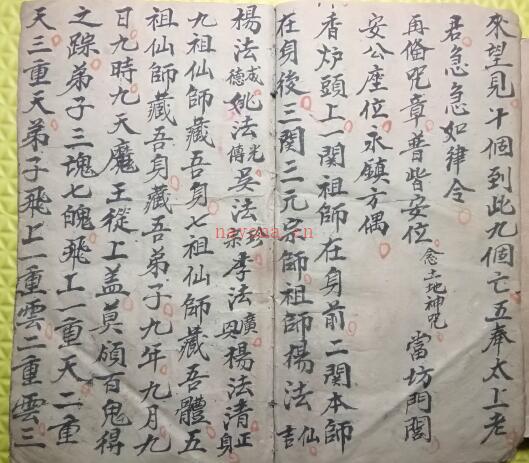 來望見十個到此九個亡五奉太上老
君急急如律令
再俻咒章普皆安位 念土地神咒 當坊門閭
安公座位永鎮方偶
香炉頭上一関祖師在身前二関本師
在身後三関三元宗師祖師楊法仙吉
楊法成德姚法光傳吳法珎宗李法廣興楊法清正身
九祖仙師藏吾身七祖仙師藏吾體五
祖仙師藏吾身藏吾弟子九年九月九
日九時九天魔王從上盖莫煩百鬼得
之踪弟子三魂七魄飛工一重天二重
天三重天弟子飛上一重雲二重雲三
nayona.cn